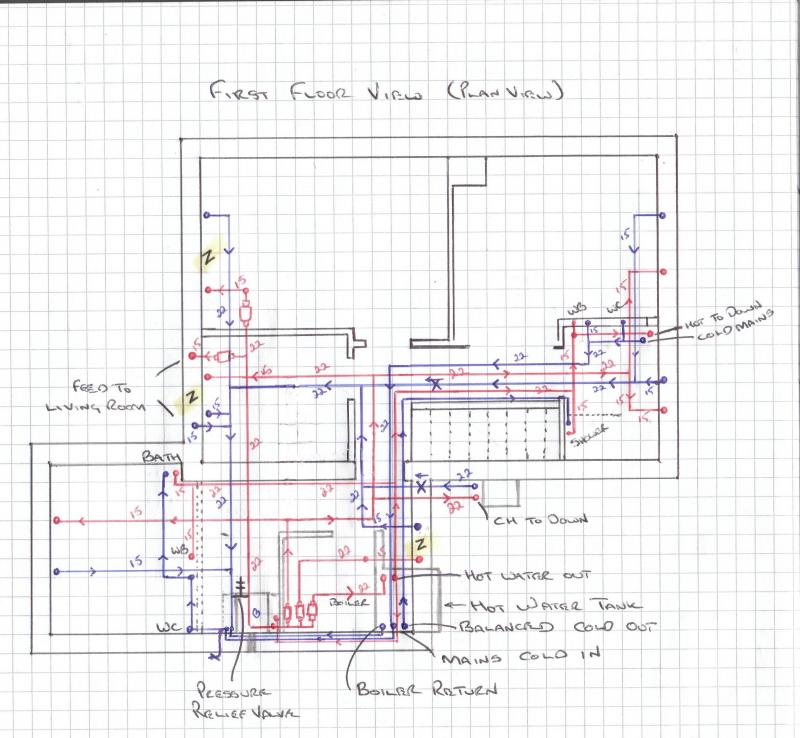 FIRST FLOOR VIEW (PLAN VIEW)
15
N
15
22
15
22
WB
WC
15
22
HOT TO DOWN
COLD MAINS
15
22
22
22
22
22
FEED TO
LIVING ROOM
N
15
15
15
15
SHOWER
BATH
15
22
22
22
22
22
22
CH TO DOWN
15
15
15
WB
15
22
22
N
HOT WATER OUT
BOILER
HOT WATER TANK
BALANCED COLD OUT
WC
MAINS COLD IN
PRESSURE
RELIEF VALVE
BOILER RETURN